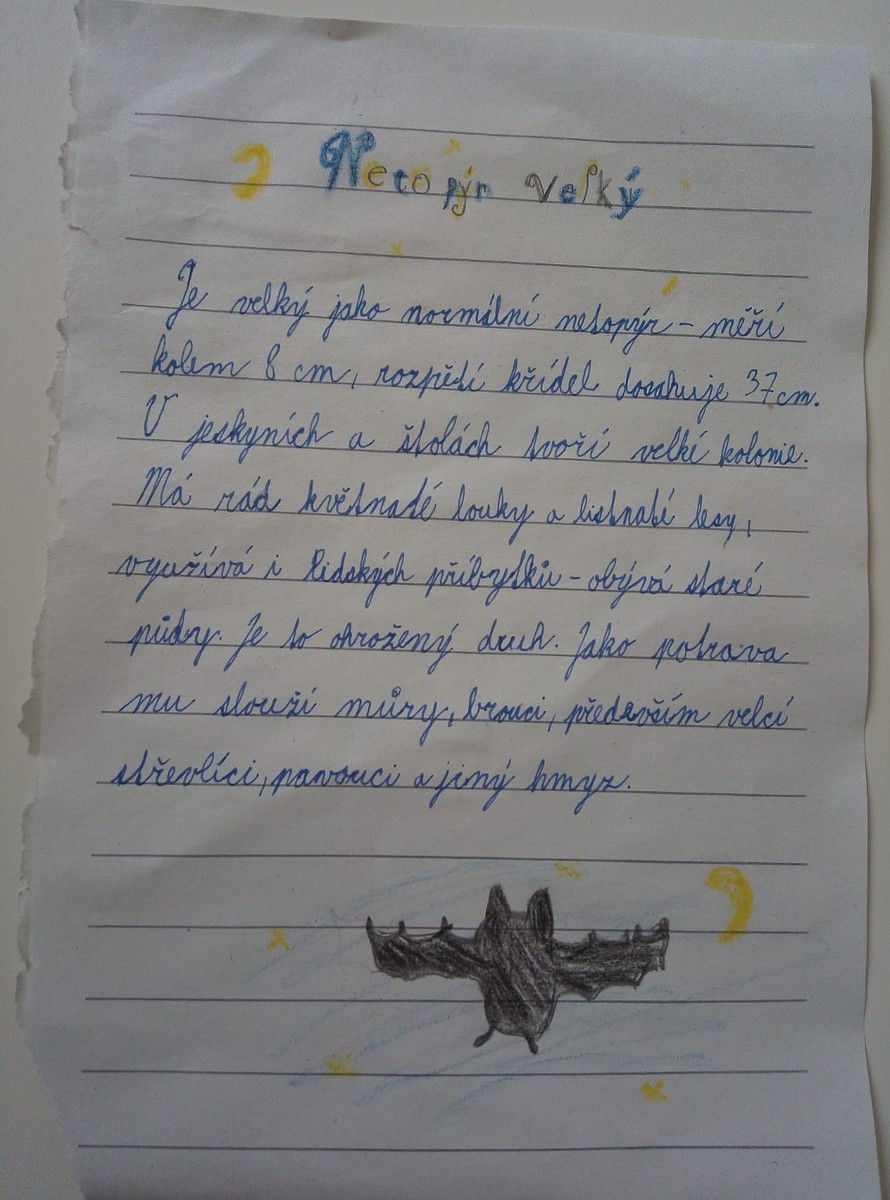 Netopýr velký
Je velký jako normální netopýr – měří
kolem 8 cm, rozpětí křídel dosahuje 37 cm.
V jeskyních a štolách tvoří velké kolonie.
Má rád květnaté louky a listnaté lesy,
využívá i lidských příbytků – obývá staré
půdy. Je to ohrožený druh. Jako potrava
mu slouží můry, brouci, především velcí
střevlíci, pavouci a jiný hmyz.